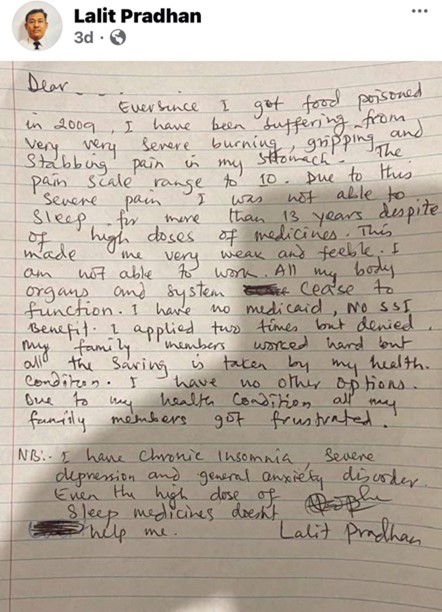 Lalit Pradhan
3d ·
Dear - - - -
Eversince I got food poisoned
in 2009, I have been suffering from
very very severe burning, gripping and
Stabbing pain in my Stomach. The
pain scale range to 10. Due to this
severe pain I was not able to
Sleep for more than 13 years despite
of high doses of medicines. This
made me very weak and feeble. I
am not able to work. All my body
organs and system cease to
function. I have no medicaid, NO SSI
Benefit. I applied two times but denied.
my family members worked hard but
all the saving is taken by my health
condition. I have no other options.
Due to my health condition all my
family members got frustrated.
NB:- I have Chronic Insomnia, Severe
depression and general anxiety discoder.
Even the high dose of
Sleep medicines doesnt
help me.
Lalit Pradhan